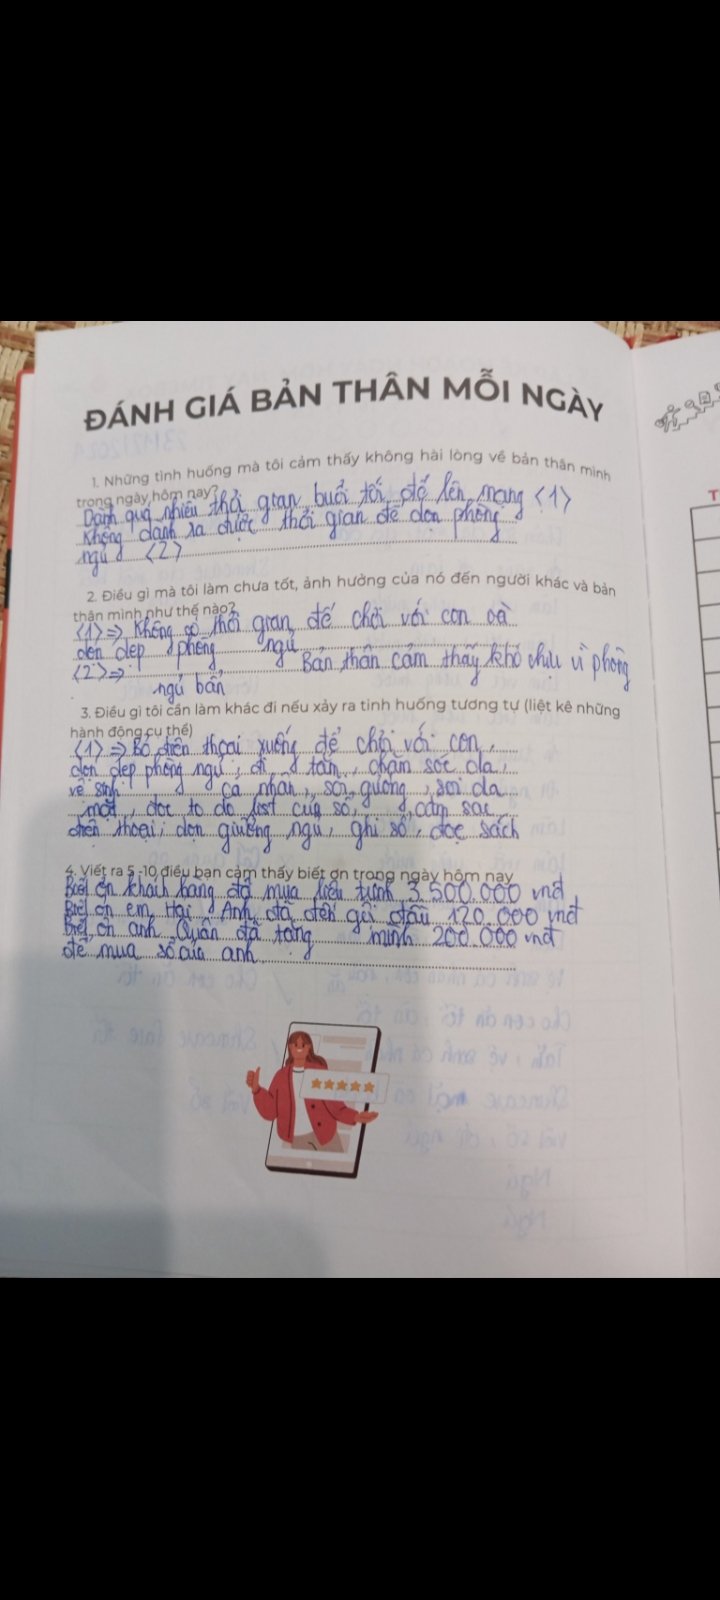 ĐÁNH GIÁ BẢN THÂN MỖI NGÀY
1. Những tình huống mà tôi cảm thấy không hài lòng về bản thân mình
trong ngày hôm nay?
Dành quá nhiều thời gian buổi tối để lên mạng <1>
Không dành ra được thời gian để dọn phòng
ngủ <2>
2. Điều gì mà tôi làm chưa tốt, ảnh hưởng của nó đến người khác và bản
thân mình như thế nào?
<1> => Không có thời gian để chơi với con và
dọn dẹp phòng ngủ
<2> => Bản thân cảm thấy khó chịu vì phòng
ngủ bẩn
3. Điều gì tôi cần làm khác đi nếu xảy ra tình huống tương tự (liệt kê những
hành động cụ thể)
<1> => Bỏ điện thoại xuống để chơi với con,
dọn dẹp phòng ngủ, đi tắm, chăm sóc da,
vệ sinh cá nhân, soi gương, soi da
mặt, đọc to do list của sổ, cắm sạc
điện thoại, dọn giường ngủ, ghi sổ, đọc sách
4. Viết ra 5 -10 điều bạn cảm thấy biết ơn trong ngày hôm nay
Biết ơn khách hàng đã mua liệu trình 3.500.000 vnđ
Biết ơn em Hải Anh đã đến gội đầu 120.000 vnđ
Biết ơn anh Quân đã tặng mình 200.000 vnđ
để mua sổ của anh